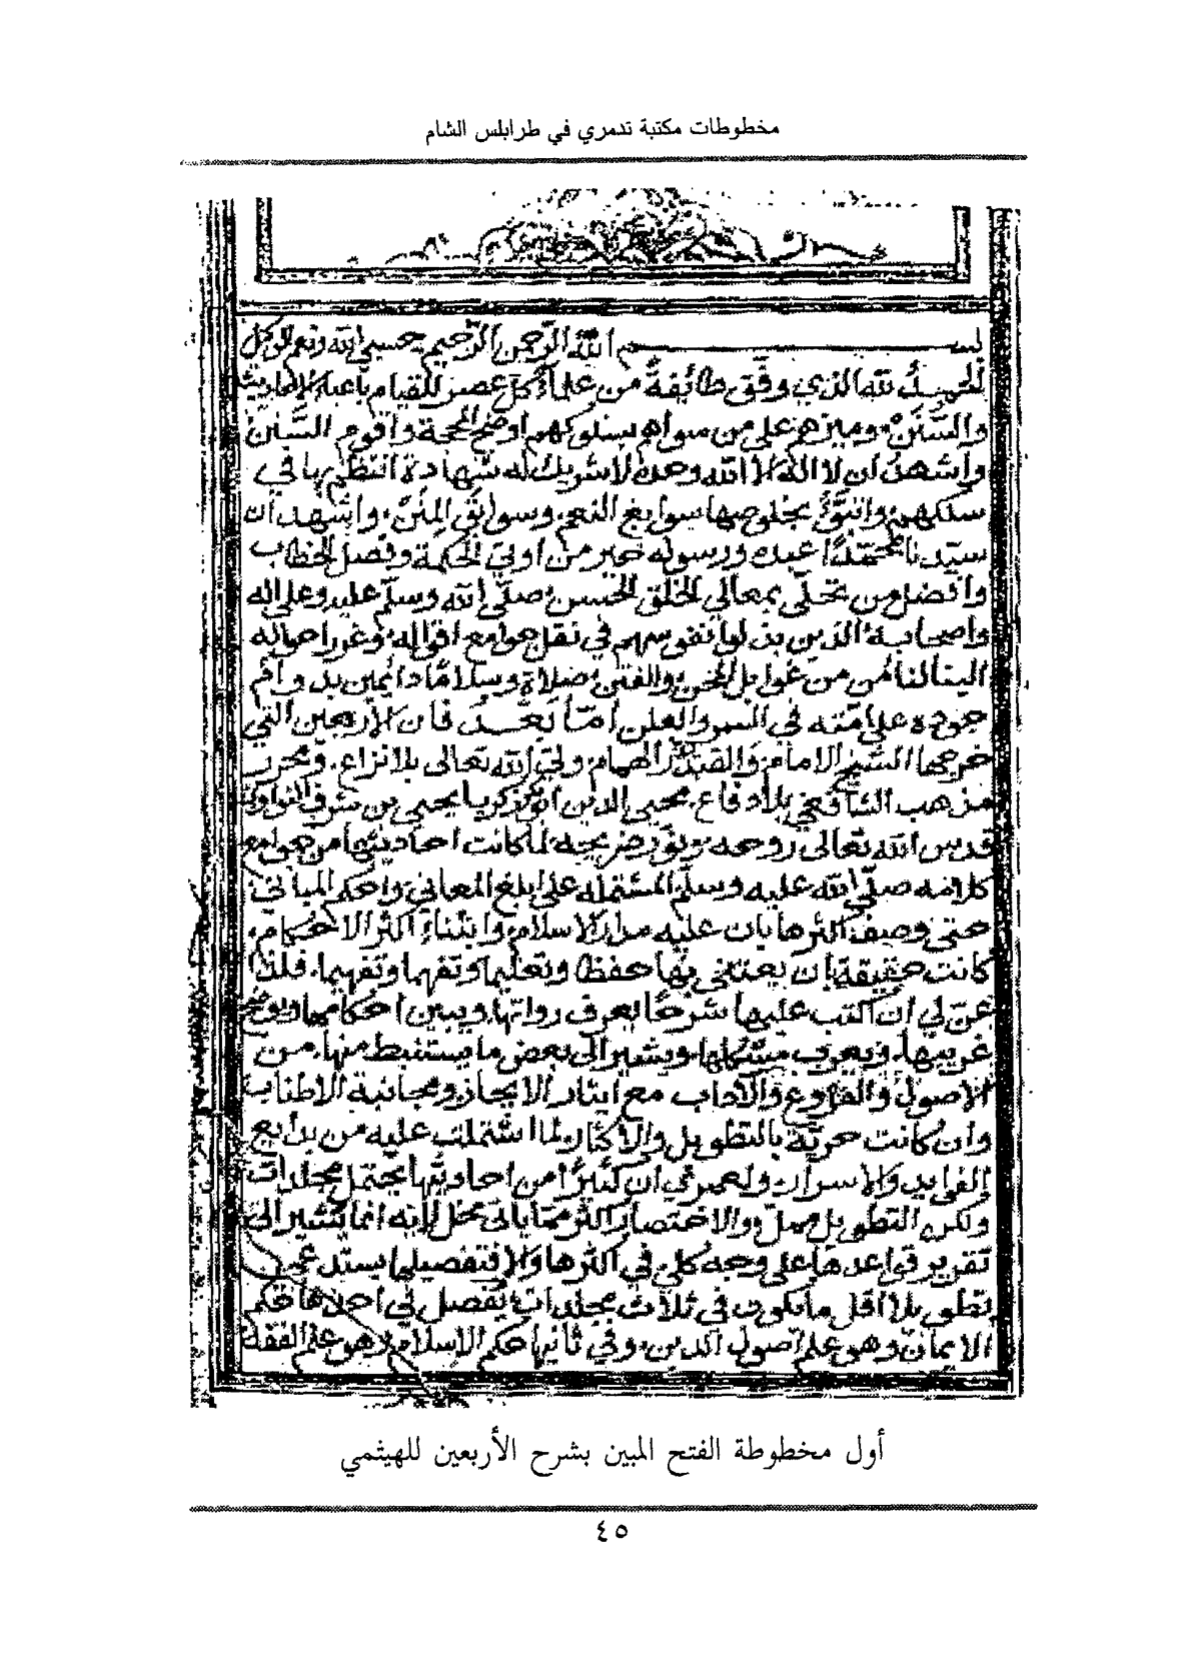 مخطوطات مكتبة تدمري في طرابلس الشام
بسم الله الرحمن الرحيم حسبي الله ونعم الوكيل
الحمد لله الذي وفّق طائفةً من علماء كل عصر للقيام باعباء الاحاديث
والسنن وميزهم على من سواهم بسلوكهم اوضح المحجة واقوم السنن
واشهد ان لا اله الا الله وحده لا شريك له شهادة انتظم بها في
سلكهم واتبوّؤ بخلوصها سوابغ النعم وسوابق المنن واشهد ان
سيدنا محمدًا عبده ورسوله خير من اوتي الحكمة وفصل الخطاب
وافضل من تحلّى بمعالي الخلق الحسن صلّى الله وسلّم عليه وعلى اله
واصحابه الذين بذلوا نفوسهم في نقل جوامع اقواله وغرر احواله
الينا لنأمن من غوايل المحن والفتن صلاة وسلامًا دائمين بدوام
جوده على امته في السر والعلن امّا بعد فان الاربعين التي
خرجها الشيخ الامام والقدوة الهمام ولي الله تعالى بلا نزاع ومحرر
مذهب الشافعي بلا دفاع محيي الدين ابو زكريا يحيى بن شرف النواوي
قدس الله تعالى روحه ونوّر ضريحه لما كانت احاديثها من جوامع
كلامه صلّى الله عليه وسلّم المشتملة على ابلغ المعاني واحكم المباني
حتى وصف اكثرها بان عليه مدار الاسلام وابتناء اكثر الاحكام
كانت حقيقة بان يعتنى بها حفظا وتعليما وتفهما وتفهيما فلذا
عنّ لي ان اكتب عليها شرحًا يعرف رواتها ويبين احكامها ويوضح
غريبها ويعرب مشكلها ويشير الى بعض ما يستنبط منها من
الاصول والفروع والآداب مع ايثار الايجاز ومجانبة الاطناب
وان كانت حريّة بالتطويل والاكثار لما اشتملت عليه من بدايع
الفوايد والاسرار ولعمري ان كثيرًا من احاديثها يحتمل مجلدات
ولكن التطويل ممل والاختصار اكثر مما ياتي مخل لانه انما يشير الى
تقرير قواعدها على وجه كلي في اكثرها والا فتفصيلها يستدعي
تطويلا اقل ما يكون في ثلاث مجلدات يفصل في احدها حكم
الايمان وهو علم اصول الدين وفي ثانيها حكم الاسلام وهو علم الفقه
أول مخطوطة الفتح المبين بشرح الأربعين للهيثمي
٤٥